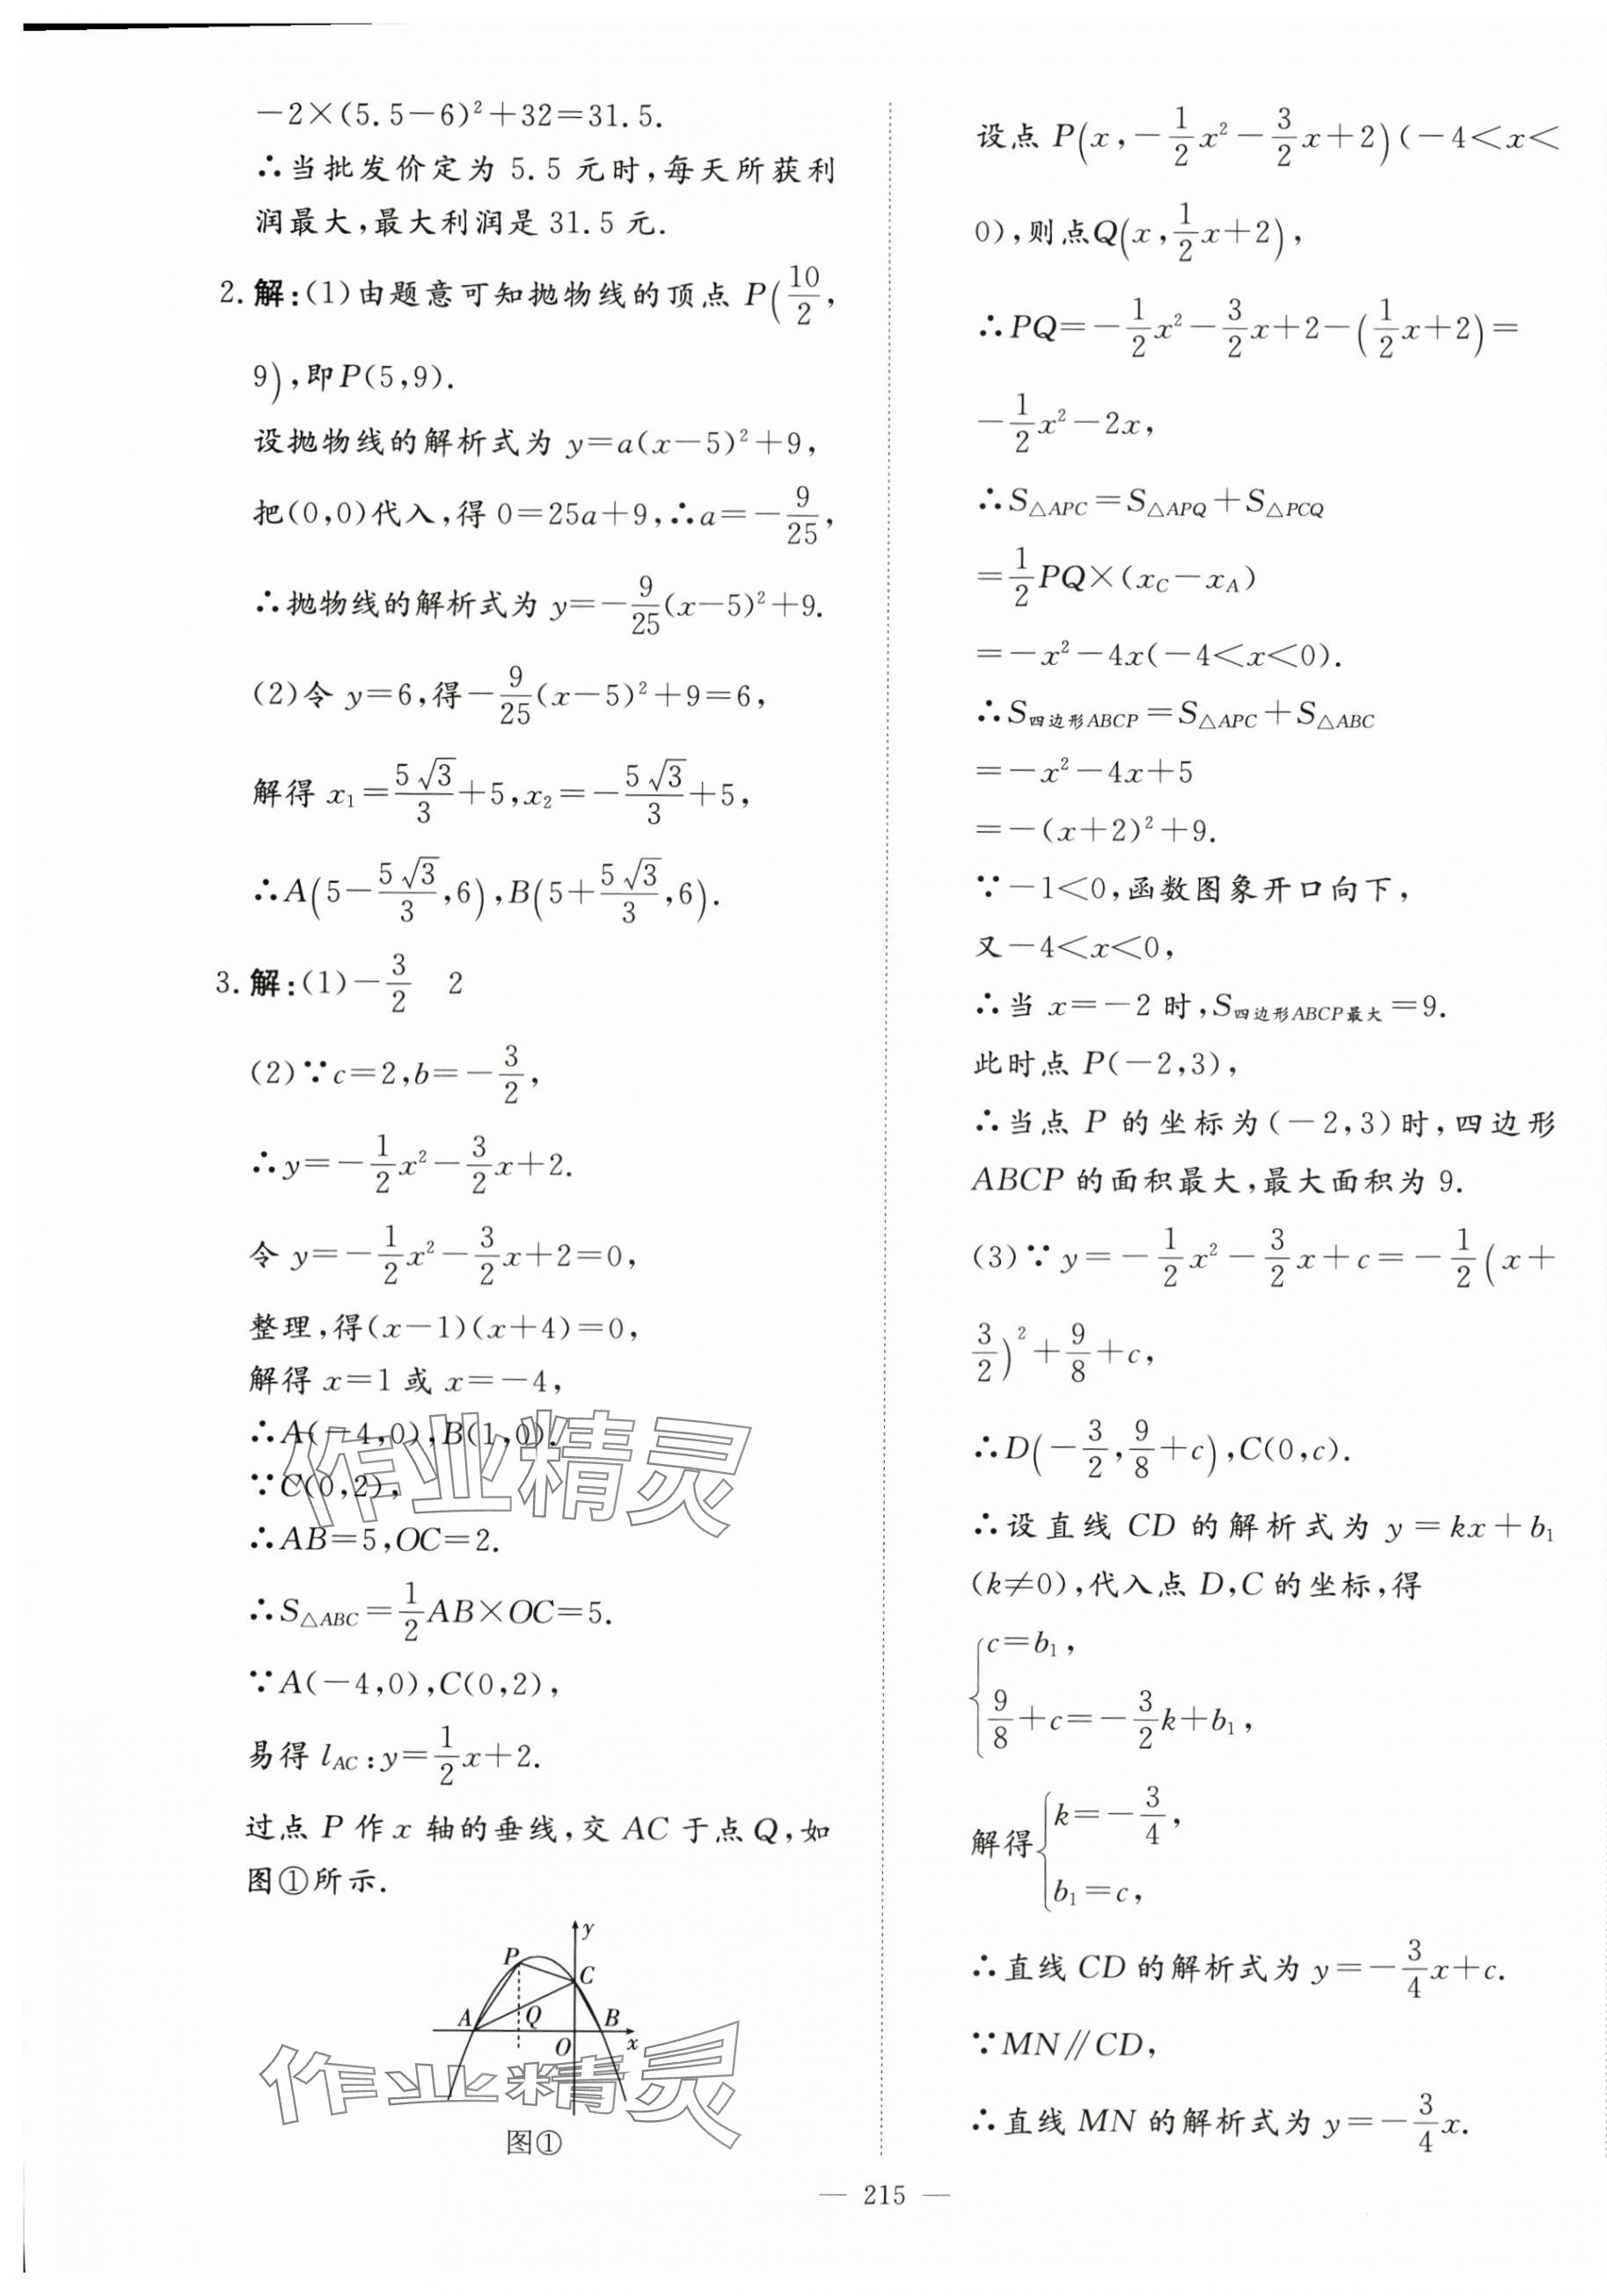 −2×(5.5−6)²+32=31.5.
∴当批发价定为 5.5 元时,每天所获利
润最大,最大利润是 31.5 元.
2. 解:(1)由题意可知抛物线的顶点 P(10/2,
9),即P(5,9).
设抛物线的解析式为 y=a(x−5)²+9,
把(0,0)代入,得 0=25a+9,∴a=−9/25,
∴抛物线的解析式为 y=−9/25(x−5)²+9.
(2)令 y=6,得−9/25(x−5)²+9=6,
解得 x₁=5√3/3+5,x₂=−5√3/3+5,
∴A(5−5√3/3,6),B(5+5√3/3,6).
3. 解:(1)−3/2 2
(2)∵c=2,b=−3/2,
∴y=−1/2x²−3/2x+2.
令 y=−1/2x²−3/2x+2=0,
整理,得(x−1)(x+4)=0,
解得 x=1 或 x=−4,
∴A(−4,0),B(1,0).
∵C(0,2),
∴AB=5,OC=2.
∴S△ABC=1/2AB×OC=5.
∵A(−4,0),C(0,2),
易得 lAC:y=1/2x+2.
过点 P 作 x 轴的垂线,交 AC 于点 Q,如
图①所示.
y
P
C
A
Q
B
O
x
图①
作业精灵
作业精灵
设点 P(x,−1/2x²−3/2x+2)(−4<x<
0),则点Q(x,1/2x+2),
∴PQ=−1/2x²−3/2x+2−(1/2x+2)=
−1/2x²−2x,
∴S△APC=S△APQ+S△PCQ
=1/2PQ×(xC−xA)
=−x²−4x(−4<x<0).
∴S四边形ABCP=S△APC+S△ABC
=−x²−4x+5
=−(x+2)²+9.
∵−1<0,函数图象开口向下,
又−4<x<0,
∴当 x=−2 时,S四边形ABCP最大=9.
此时点 P(−2,3),
∴当点 P 的坐标为(−2,3)时,四边形
ABCP 的面积最大,最大面积为 9.
(3)∵y=−1/2x²−3/2x+c=−1/2(x+
3/2)²+9/8+c,
∴D(−3/2,9/8+c),C(0,c).
∴设直线 CD 的解析式为 y=kx+b₁
(k≠0),代入点 D,C 的坐标,得
{c=b₁,
9/8+c=−3/2k+b₁,
解得{k=−3/4,
b₁=c,
∴直线 CD 的解析式为 y=−3/4x+c.
∵MN∥CD,
∴直线 MN 的解析式为 y=−3/4x.
— 215 —